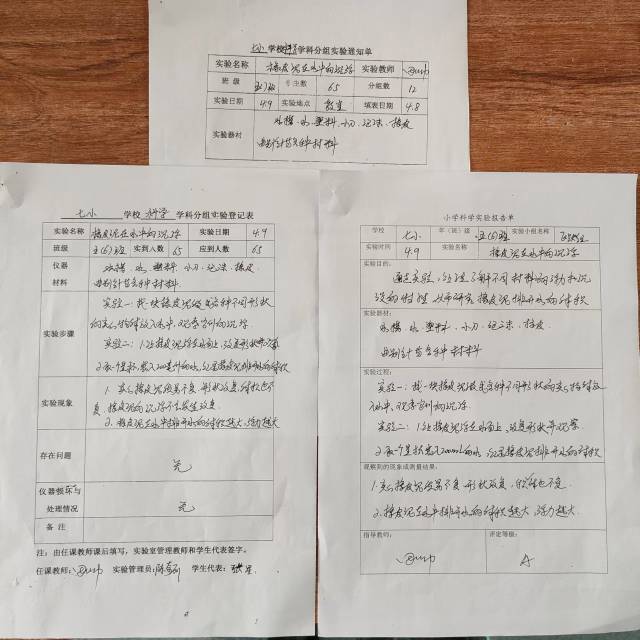 七小 学校 科学 学科分组实验通知单
实验名称 橡皮泥在水中的沉浮 实验教师
班级 五(6)班 学生数 65 分组数 12
实验日期 4.9 实验地点 教室 填表日期 4.8
实验器材 水槽、水、塑料、小刀、记录、橡皮
曲别针等各种材料
七小 学校 科学 学科分组实验登记表
实验名称 橡皮泥在水中的沉浮 实验日期 4.9
班级 五(6)班 实到人数 65 应到人数 65
仪器材料 水槽、水、塑料、小刀、记录、橡皮
曲别针等各种材料
实验步骤 实验一:找一块橡皮泥做成各种不同形状
的实心物体放入水中,观察它们的沉浮
实验二:1.让橡皮泥浮在水面上,改变形状并观察
2.在一个量杯装入200毫升的水,记录橡皮泥排开水的体积
实验现象 1.实心橡皮泥质量不变,形状改变,体积也不
变,橡皮泥的沉浮不会发生改变。
2.橡皮泥在水中排开水的体积越大,浮力越大
存在问题 无
仪器损坏与处理情况 无
备注
注:由任课教师课后填写,实验室管理教师和学生代表签字。
任课教师: 实验管理员: 学生代表:
小学科学实验报告单
学校 七小 年(班)级 五(6)班 实验小组名称
实验时间 4.9 实验名称 橡皮泥在水中的沉浮
实验目的:
通过实验,让学生了解不同材料的浮和沉
实验器材:
水槽、水、塑料、小刀、记录、橡皮
曲别针等各种材料
实验过程:
实验一:找一块橡皮泥做成各种不同形状的实心物体放
入水中,观察它们的沉浮
实验二:1.让橡皮泥浮在水面上,改变形状并观察
2.在一个量杯装入200ml的水,记录橡皮泥排开水的体积
观察到的现象或测量结果:
1.实心橡皮泥质量不变,形状改变,体积也不变。
2.橡皮泥在水中排开水的体积越大,浮力越大。
指导教师: 评定等级:
A